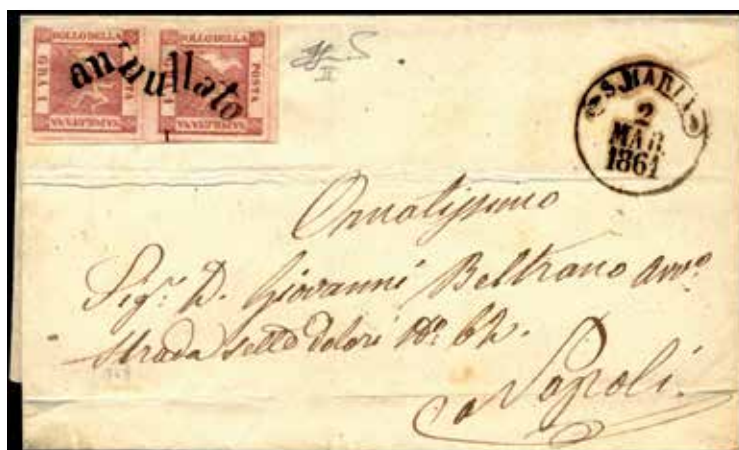 BOLLO DELLA
POSTA
NAPOLETANA
GRA 1
BOLLO DELLA
POSTA
NAPOLETANA
GRA 1
annullato
II
S. MARIA
2
MAR
1861
Ornatissimo
Sig.r D. Giovanni Beltrano Avv.o
Strada sette dolori No. 62.
a Napoli.